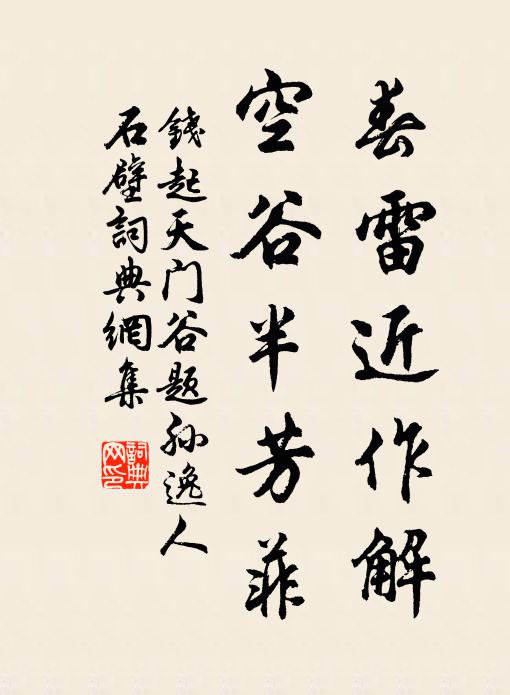 春雷近作解
空谷半芳菲
錢起天门谷题孙逸人
石壁詞典網集
詞典网印